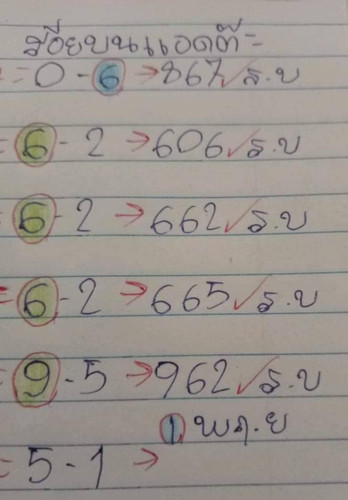 ร้อยบนแอดต๊ะ
= 0 - 6 → 867 ✓ ร.บ
= 6 - 2 → 606 ✓ ร.บ
= 6 - 2 → 662 ✓ ร.บ
= 6 - 2 → 665 ✓ ร.บ
= 9 - 5 → 962 ✓ ร.บ
1 พฤ.ย
= 5 - 1 →